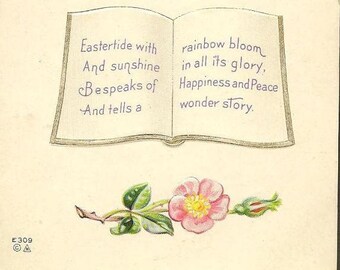 Eastertide with rainbow bloom
And sunshine in all its glory,
Bespeaks of Happiness and Peace
And tells a wonder story.
E309
©